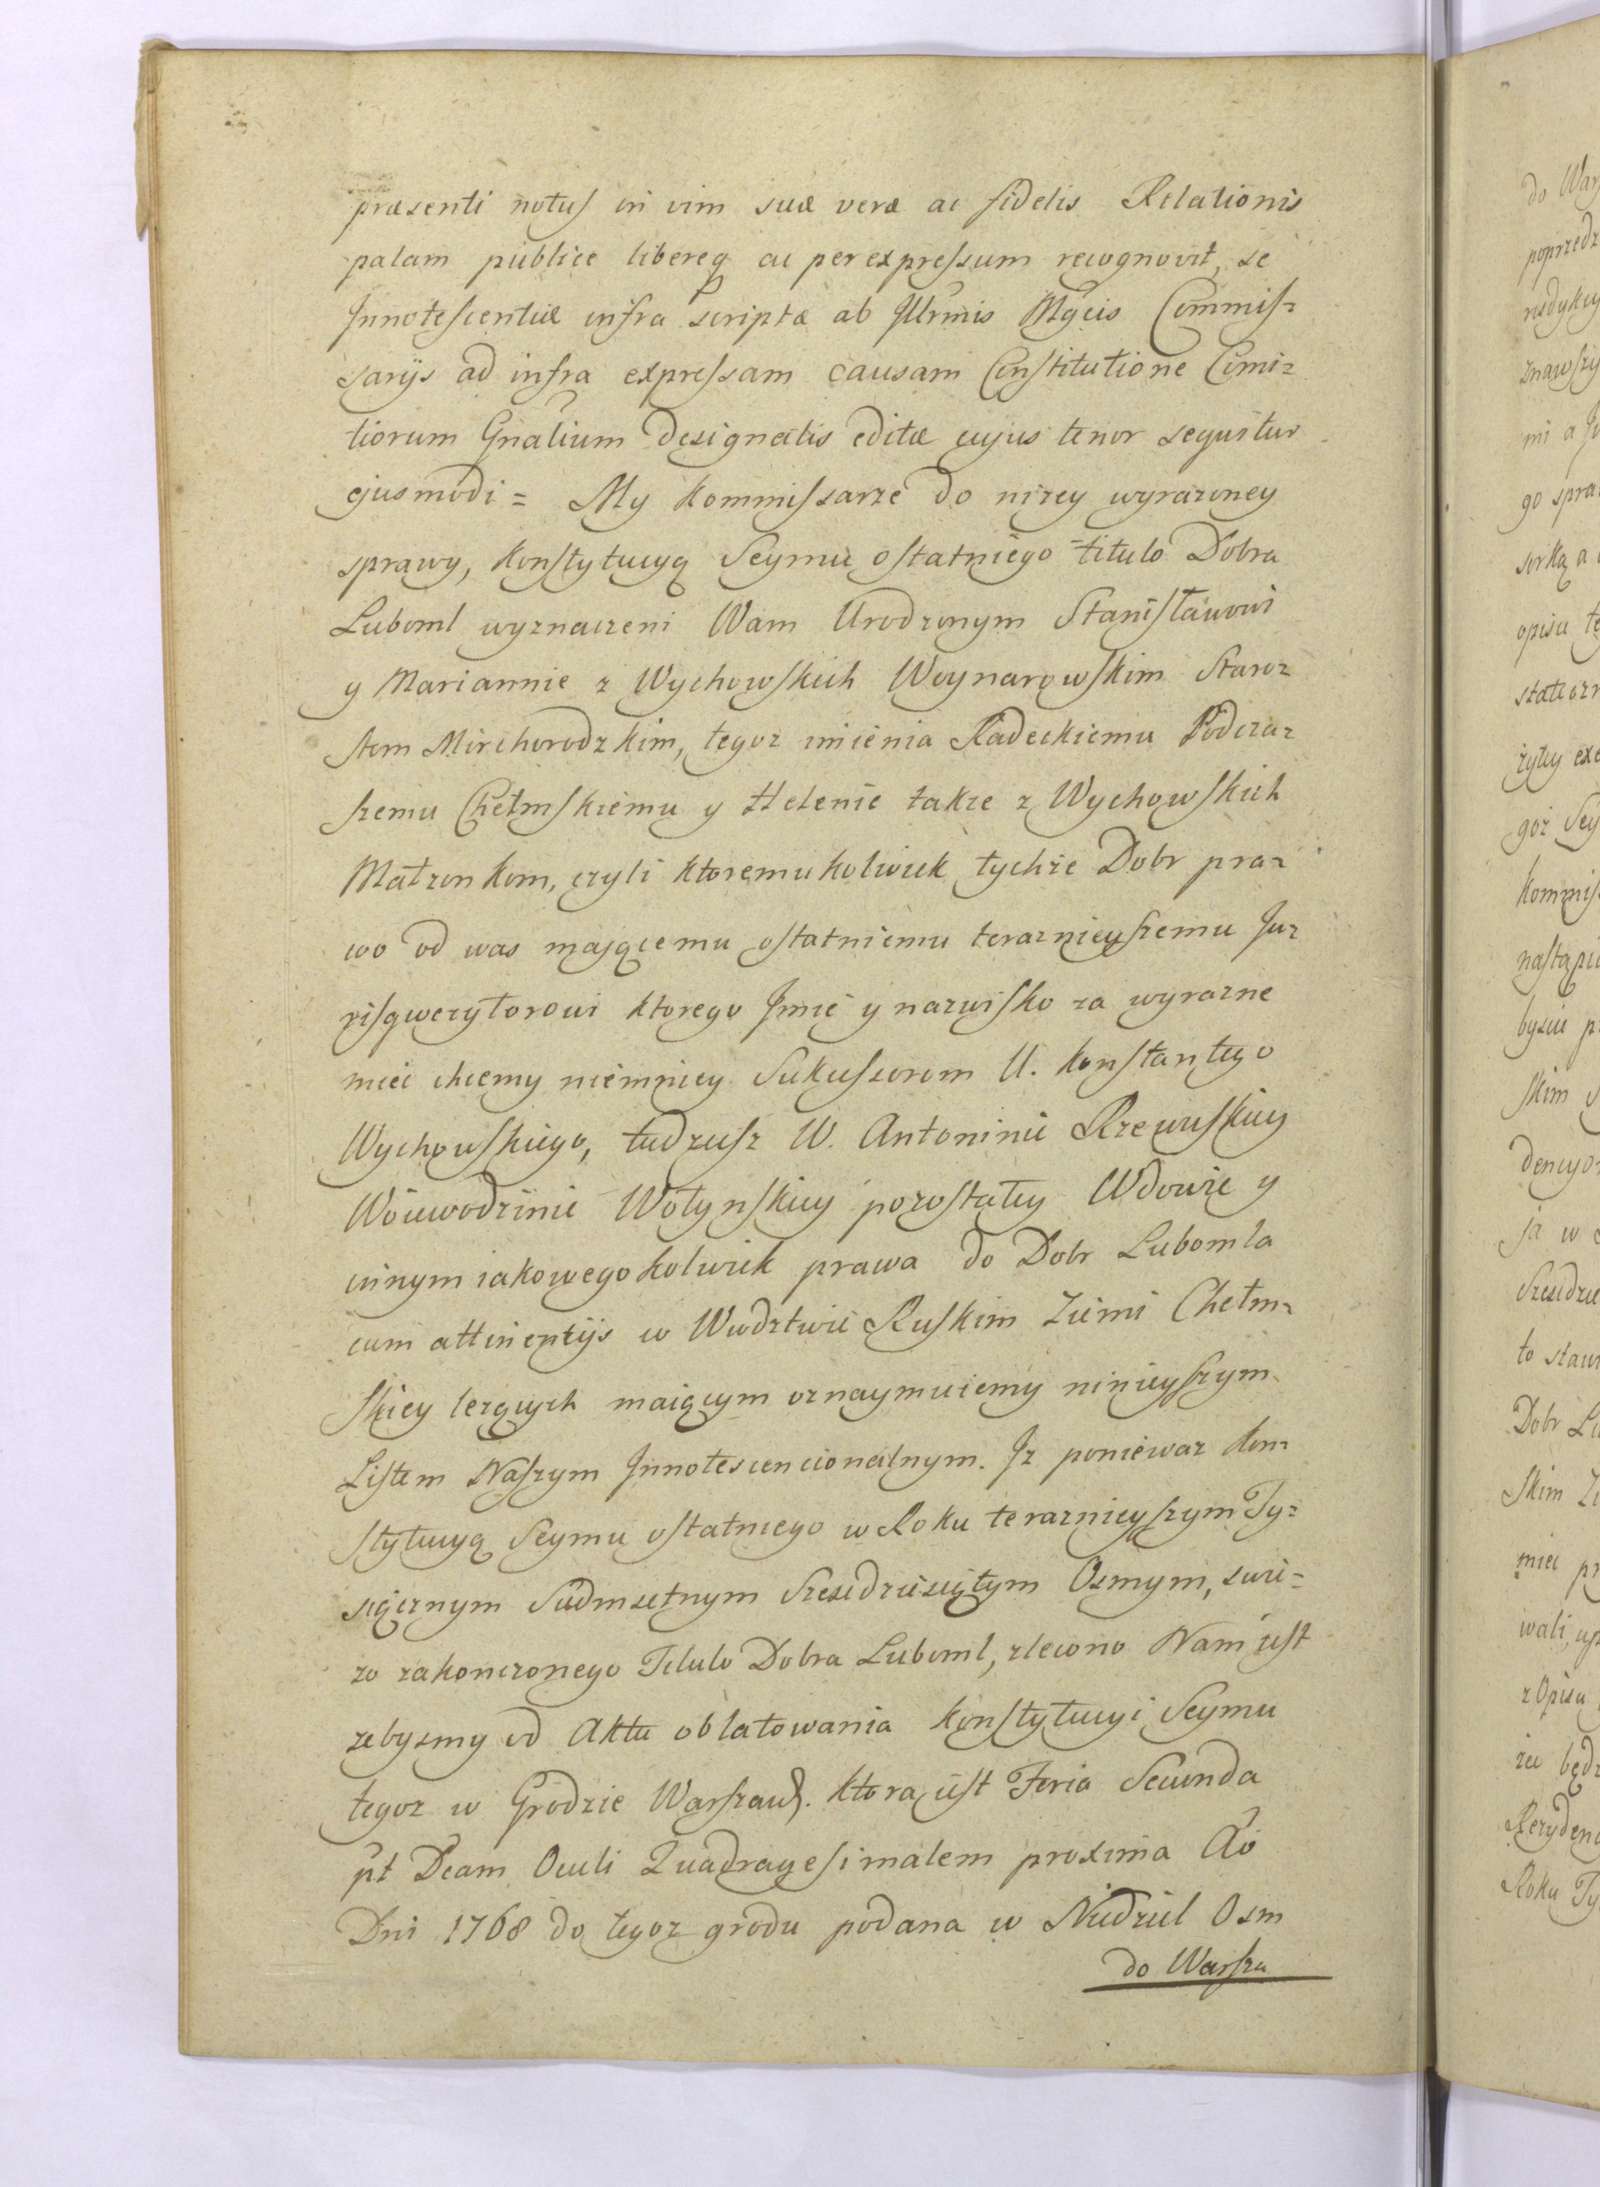 præsenti notus in vim suæ veræ ac fidelis Relationis
palam publice libereq ac per expressum recognovit, se
Innotescentiæ infra scriptæ ab Illrmis Mgcis Commis=
sarijs ad infra expressam causam Constitutione Comi=
tiorum Gnalium designatis editæ cujus tenor sequitur
ejusmodi = My Kommissarze do nizey wyrazoney
sprawy, Konstytucyą Seymu ostatniego titulo Dobra
Luboml wyznaczeni Wam Urodzonym Stanisławowi
y Mariannie z Wychowskich Woynarowskim Staro=
stom Mirchorodzkim, tegoz imienia Radeckiemu Podcza=
szemu Chełmskiemu y Helenie takze z Wychowskich
Małzonkom, czyli ktoremukolwiek tychże Dobr pra=
wo od was mającemu ostatniemu teraznieyszemu Ju=
risqwezytorowi ktorego Jmię y nazwisko za wyrazne
miec chcemy niemniey Sukcessorom U. Konstantego
Wychowskiego, tudziesz W. Antoninie Rzewuskiey
Woiewodzinie Wołynskiey pozostałey Wdowie y
innym iakowegokolwiek prawa do Dobr Lubomla
cum attinentijs w Wwdztwie Ruskim Ziemi Chełm=
skiey lezących maiącym oznaymuiemy ninieyszym
Listem Naszym Innotescencionalnym. Iz poniewaz Kon=
stytucyą Seymu ostatniego w Roku teraznieyszym Ty=
siącznym Siedmsetnym Szescdziesiątym Osmym, swie=
zo zakonczonego Titulo Dobra Luboml, zlecono Nam iest
zebysmy od Aktu oblatowania Konstytucyi Seymu
tegoz w Grodzie Warszaw. ktora iest Feria Secunda
pt Dcam Oculi Quadragesimalem proxima Ao
Dni 1768 do tegoz grodu podana w Niedziel Osm
do Warsza
do
poprzedz
znawszy
mi a
go spra
opisu te
żyley exe
goż Sey
Kommis
nastąpi
skim
ja w
to staw
Dobr Lu
skim Zi
miec pr
wali,
z Opisu
będz
Rezydenc
Roku Ty